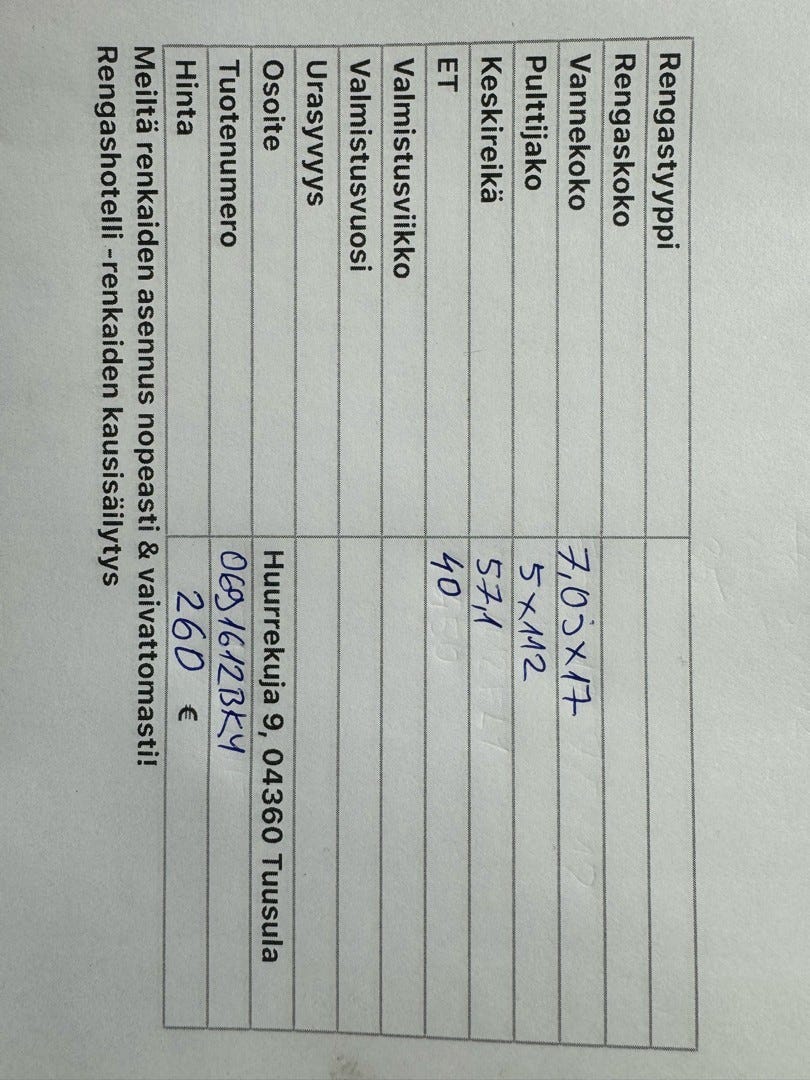 Rengastyyppi
Rengaskoko
Vannekoko 7,0Jx17
Pulttijako 5x112
Keskireikä 57,1
ET 40
Valmistusviikko
Valmistusvuosi
Urasyvyys
Osoite Huurrekuja 9, 04360 Tuusula
Tuotenumero 0691612BKY
Hinta 260 €
Meiltä renkaiden asennus nopeasti & vaivattomasti!
Rengashotelli -renkaiden kausisäilytys